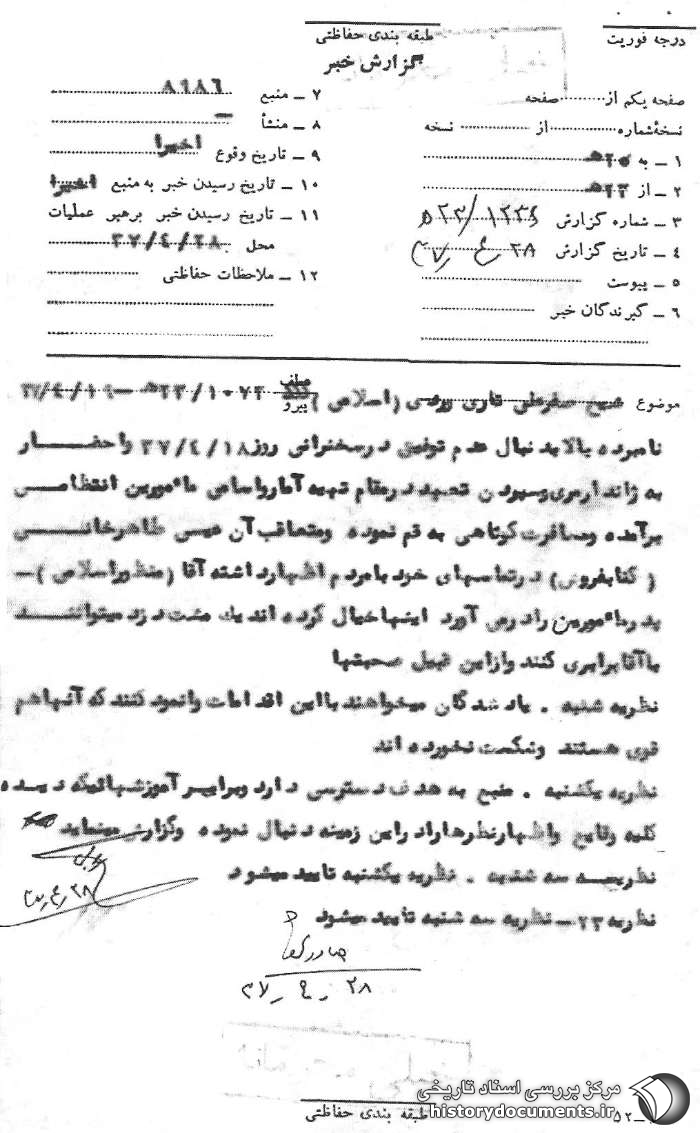 درجه فوریت
طبقه بندی حفاظتی
گزارش خبر
صفحه یکم از صفحه
نسخهٔ شماره از نسخه
۱ – به ۲۵۰هـ
۲ – از ۲۳هـ
۳ – شماره گزارش ۱۲۳۶/۲۳ه
۴ – تاریخ گزارش ۲۸ر۴ر۳۷
۵ – پیوست
۶ – گیرندگان خبر
۷ – منبع ۸۹۸۶
۸ – منشأ –
۹ – تاریخ وقوع اخیرا
۱۰ – تاریخ رسیدن خبر به منبع اخیرا
۱۱ – تاریخ رسیدن خبر برهبر عملیات
محل ۳۷/۴/۲۸
۱۲ – ملاحظات حفاظتی
موضوع شیخ صفرعلی (اسلامی) پیرو ۱۰۷۲/۲۳هـ – ۳۷/۴/۱۹
نامبرده بالا بدنبال عدم توفیق در سخنرانی روز ۳۷/۴/۱۸ و احضار
به ژاندارمری و سپردن تعهد در مقام تهیه آمار و اسامی مامورین انتظامی
برآمده ومسافرت کوتاهی به قم نموده ومتعاقب آن عیسی طاهرخانی
( کتابفروش) در تماسهای خود با مردم اظهار داشته آقا (منظور اسلامی) –
پدر مامورین را در می آورد اینها خیال کرده اند یك مشت دزد میتوانند
با آقا برابری کنند و از این قبیل صحبتها
نظریه شنبه . یاد شدگان میخواهند با این اقدامات وانمود کنند که آنها هم
قوی هستند وشکست نخورده اند
نظریه یکشنبه . منبع به هدف دسترسی دارد وبرابر آموزشهائیکه دیده
کلیه وقایع واظهارنظرها را در این زمینه دنبال نموده وگزارش مینماید
نظریه سه شنبه . نظریه یکشنبه تایید میشود
۲۸ر۴ر۳۷
نظریه ۲۳ – نظریه سه شنبه تایید میشود
۲۸ر۴ر۳۷
مرکز بررسی اسناد تاریخی
historydocuments.ir
طبقه بندی حفاظتی